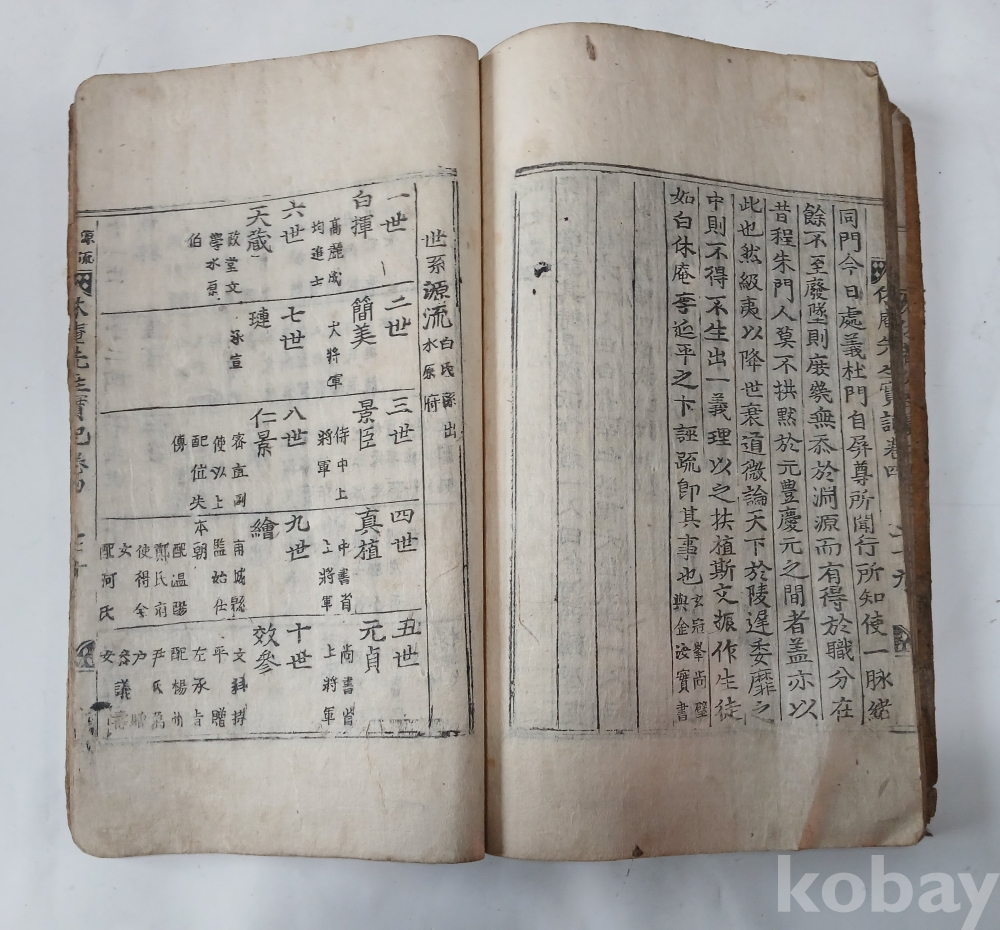 同門今日處義杜門自屏尊所聞行所知使一脉緒
餘不至廢墜則庶幾無忝於淵源而有得於職分在
昔程朱門人莫不拱默於元豊慶元之間者盖亦以
此也然級夷以降世衰道微論天下於陵遅委靡之
中則不得不生出一義理以之扶植斯文振作生徒
如白休庵李延平之卞誣疏即其事也
休庵先生實記卷四
世系源流
白氏系出
水原府
一世
白揮
高麗成
均進士
二世
簡美
大將軍
三世
景臣
侍中上
將軍
四世
真植
中書省
上將軍
五世
元貞
尚書省
上將軍
六世
天蔵
政堂文
學水原
伯
七世
璉
承宣
八世
仁景
密直副
使以上
配位失
傳
九世
繪
南城縣
監始仕
本朝
配温陽
鄭氏府
使得
女
配河氏
十世
效參
文科
平贈
左承旨
配楊州
尹氏
女
源流
休庵先生實記卷四
kobay